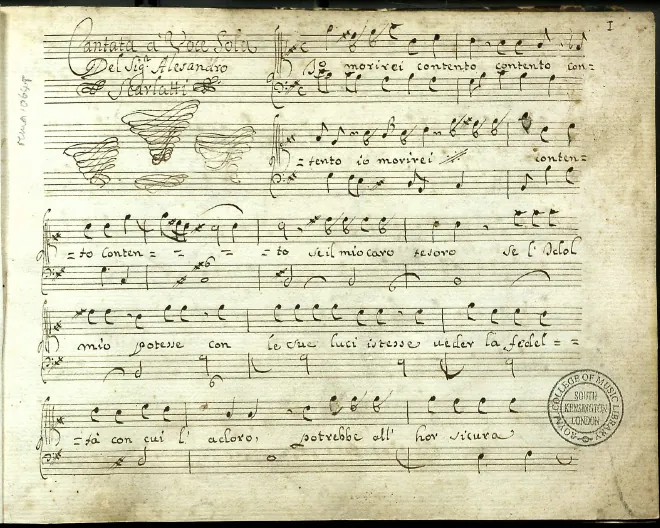 I
Cantata a Voce Sola
Del Sigr. Alesandro
Scarlatti
Io morirei contento contento con=
=tento io morirei conten=
=to conten= = = = =to se il mio caro tesoro Se l' Idol
mio potesse con le sue luci istesse ueder la fedel= =
=tà con cui l' adoro, potrebbe all' hor sicura
ROYAL COLLEGE OF MUSIC LIBRARY
SOUTH
KENSINGTON
LONDON